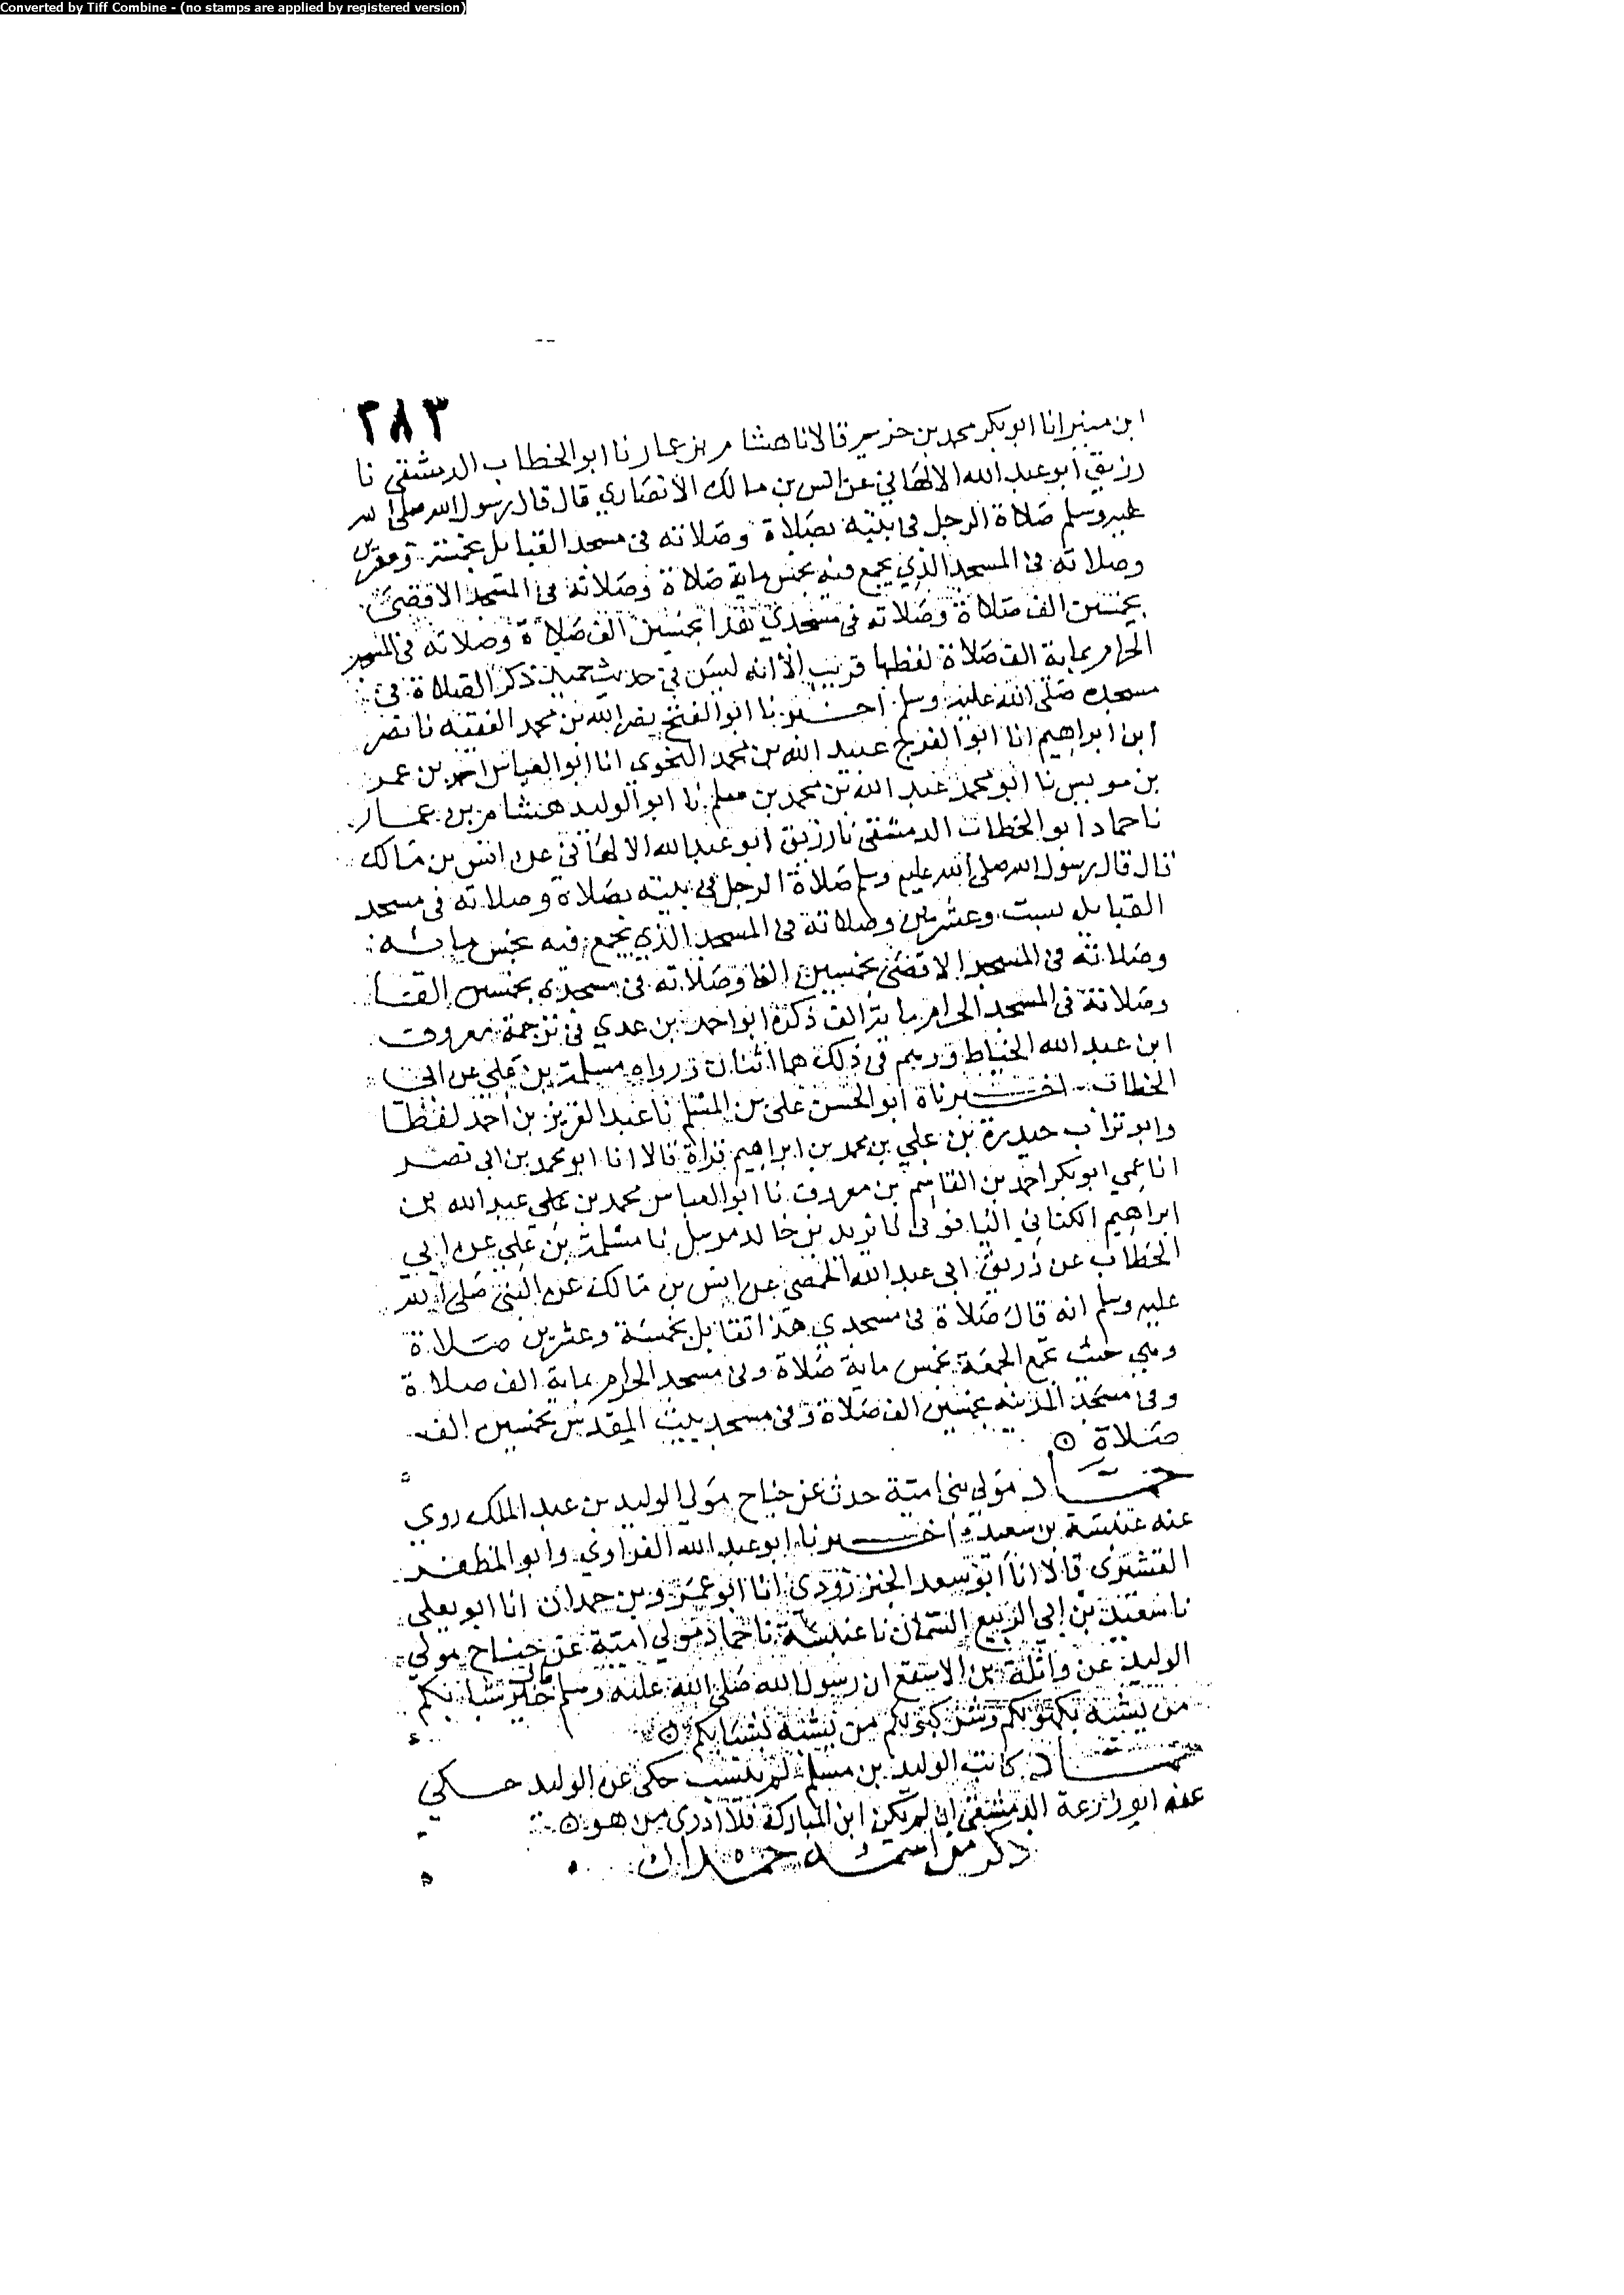 Converted by Tiff Combine - (no stamps are applied by registered version)
٢٨٣
ابن منير انا ابو بكر محمد بن خريم قالا نا هشام بن عمار نا ابو الخطاب الدمشقي نا
رزيق ابو عبد الله الالهاني عن انس بن مالك الانصاري قال قال رسول الله صلى الله
عليه وسلم صلاة الرجل في بيته بصلاة وصلاته في مسجد القبايل بخمسة وعشرين
وصلاته في المسجد الذي يجمع فيه بخمس ماية صلاة وصلاته في المسجد الاقصى
بخمسين الف صلاة وصلاته في مسجدي هذا بخمسين الف صلاة وصلاته في المسجد
الحرام بماية الف صلاة لفظها قريب الا انه ليس في حديث ذكر الصلاة في
مسجده صلى الله عليه وسلم اخبرنا ابو الفتح نصر الله بن محمد الفقيه نا نصر
ابن ابراهيم انا ابو الفرج عبيد الله بن محمد النحوي انا ابو العباس احمد بن عمر
بن موسى نا ابو محمد عبد الله بن محمد بن سلم نا ابو الوليد هشام بن عمار
نا حماد ابو الخطاب الدمشقي نا رزيق ابو عبد الله الالهاني عن انس بن مالك
قال قال رسول الله صلى الله عليه وسلم صلاة الرجل في بيته بصلاة وصلاته في مسجد
القبايل بست وعشرين وصلاته في المسجد الذي يجمع فيه بخمس مائه
وصلاته في المسجد الاقصى بخمسين الفا وصلاته في مسجدي بخمسين الفا
وصلاته في المسجد الحرام بماية الف ذكره ابو احمد بن عدي في ترجمة معروف
ابن عبد الله الخياط ووهم في ذلك هما اثنان ورواه مسلمة بن علي عن ابي
الخطاب اخبرناه ابو الحسن علي بن المسلم نا عبد العزيز بن احمد لفظا
وابو تراب حيدرة بن علي بن محمد بن ابراهيم قراة قالا انا ابو محمد بن ابي نصر
انا عمي ابو بكر احمد بن القاسم بن معروف نا ابو العباس محمد بن علي عبد الله بن
ابراهيم الكناني اليافوني نا يزيد بن خالد مرسل نا مسلمة بن علي عن ابي
الخطاب عن زريق ابي عبد الله الحمصي عن انس بن مالك عن النبي صلى الله
عليه وسلم انه قال صلاة في مسجدي هذا تقابل بخمسة وعشرين صلاة
وهي حيث تجمع الجمعة بخمس ماية صلاة وفي مسجد الحرام بماية الف صلاة
وفي مسجد المدينه بخمسين الف صلاة وفي مسجد بيت المقدس بخمسين الف
صلاة ٥
حماد مولى بني امية حدث عن جناح مولى الوليد بن عبد الملك روي
عنه عنبسة بن سعيد اخبرنا ابو عبد الله الفراوي وابو المظفر
القشيري قالا انا ابو سعد الجنزرودي انا ابو عمرو بن حمدان انا ابو يعلي
نا سعيد بن ابي الربيع السمان نا عنبسة نا حماد مولى امية عن جناح مولى
الوليد عن واثلة بن الاسقع ان رسول الله صلى الله عليه وسلم قال خير شبابكم
من تشبه بكهولكم وشر كهولكم من تشبه بشبابكم ٥
حماد كاتب الوليد بن مسلم لم ينسب حكى عن الوليد حكي
عنه ابو زرعة الدمشقي ان لم يكن ابن المبارك فلا ادري من هو ٥
ذكر من اسمه حمدان